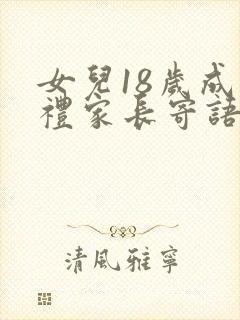 女兒18歲成
禮家長寄語
清風雅寧